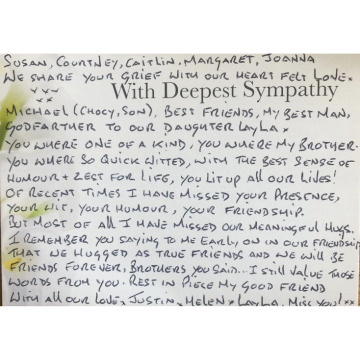 SUSAN, COURTNEY, CAITLIN, MARGARET, JOANNA
WE SHARE YOUR GRIEF WITH OUR HEART FELT LOVE.
With Deepest Sympathy
MICHAEL (CHOCY, SON), BEST FRIENDS, MY BEST MAN,
GODFARTHER TO OUR DAUGHTER LAYLA x
YOU WHERE ONE OF A KIND, YOU WHERE MY BROTHER.
YOU WHERE SO QUICK WITTED, WITH THE BEST SENSE OF
HUMOUR + ZEST FOR LIFE, YOU LIT UP ALL OUR LIVES!
OF RECENT TIMES I HAVE MISSED YOUR PRESENCE,
YOUR WIT, YOUR HUMOUR, YOUR FRIENDSHIP.
BUT MOST OF ALL I HAVE MISSED OUR MEANINGFUL HUGS.
I REMEMBER YOU SAYING TO ME EARLY, ON IN OUR FRIENDSHIP
THAT WE HUGGED AS TRUE FRIENDS AND WE WILL BE
FRIENDS FOREVER, BROTHERS YOU SAID... I STILL VALUE THOSE
WORDS FROM YOU. REST IN PIECE MY GOOD FRIEND
WITH ALL OUR LOVE, JUSTIN, HELEN x LAYLA. MISS YOU! xx